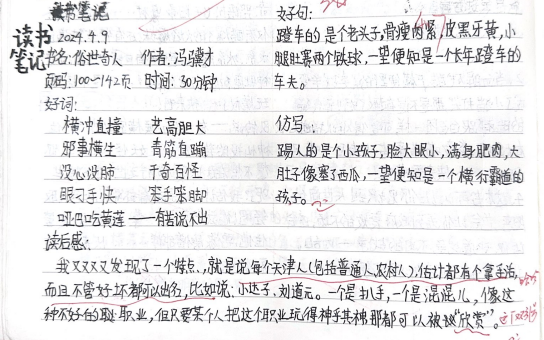 读书笔记
读书
笔记
2024.4.9
书名:俗世奇人 作者:冯骥才
页码:100~142页 时间:30分钟
好词:
横冲直撞 艺高胆大
邪事横生 青筋直蹦
没心没肺 千奇百怪
眼疾手快 笨手笨脚
哑巴吃黄莲——有苦说不出
好句:
蹬车的是个老头子,骨瘦肉紧,皮黑牙黄,小
腿肚赛两个铁球,一望便知是一个长年蹬车的
车夫。
仿写:
踢人的是个小孩子,脸大眼小,满身肥肉,大
肚子像塞了西瓜,一望便知是一个横行霸道的
孩子。
读后感:
我又又又发现了一个特点,就是说每个天津人(包括普通人、农村人),估计都有个拿手活,
而且不管好坏都可以出名,比如说:小达子、刘道元。一个是扒手,一个是混混儿,像这
种不好的职业,但只要某个人把这个职业玩得神乎其神那都可以被"欣赏"。